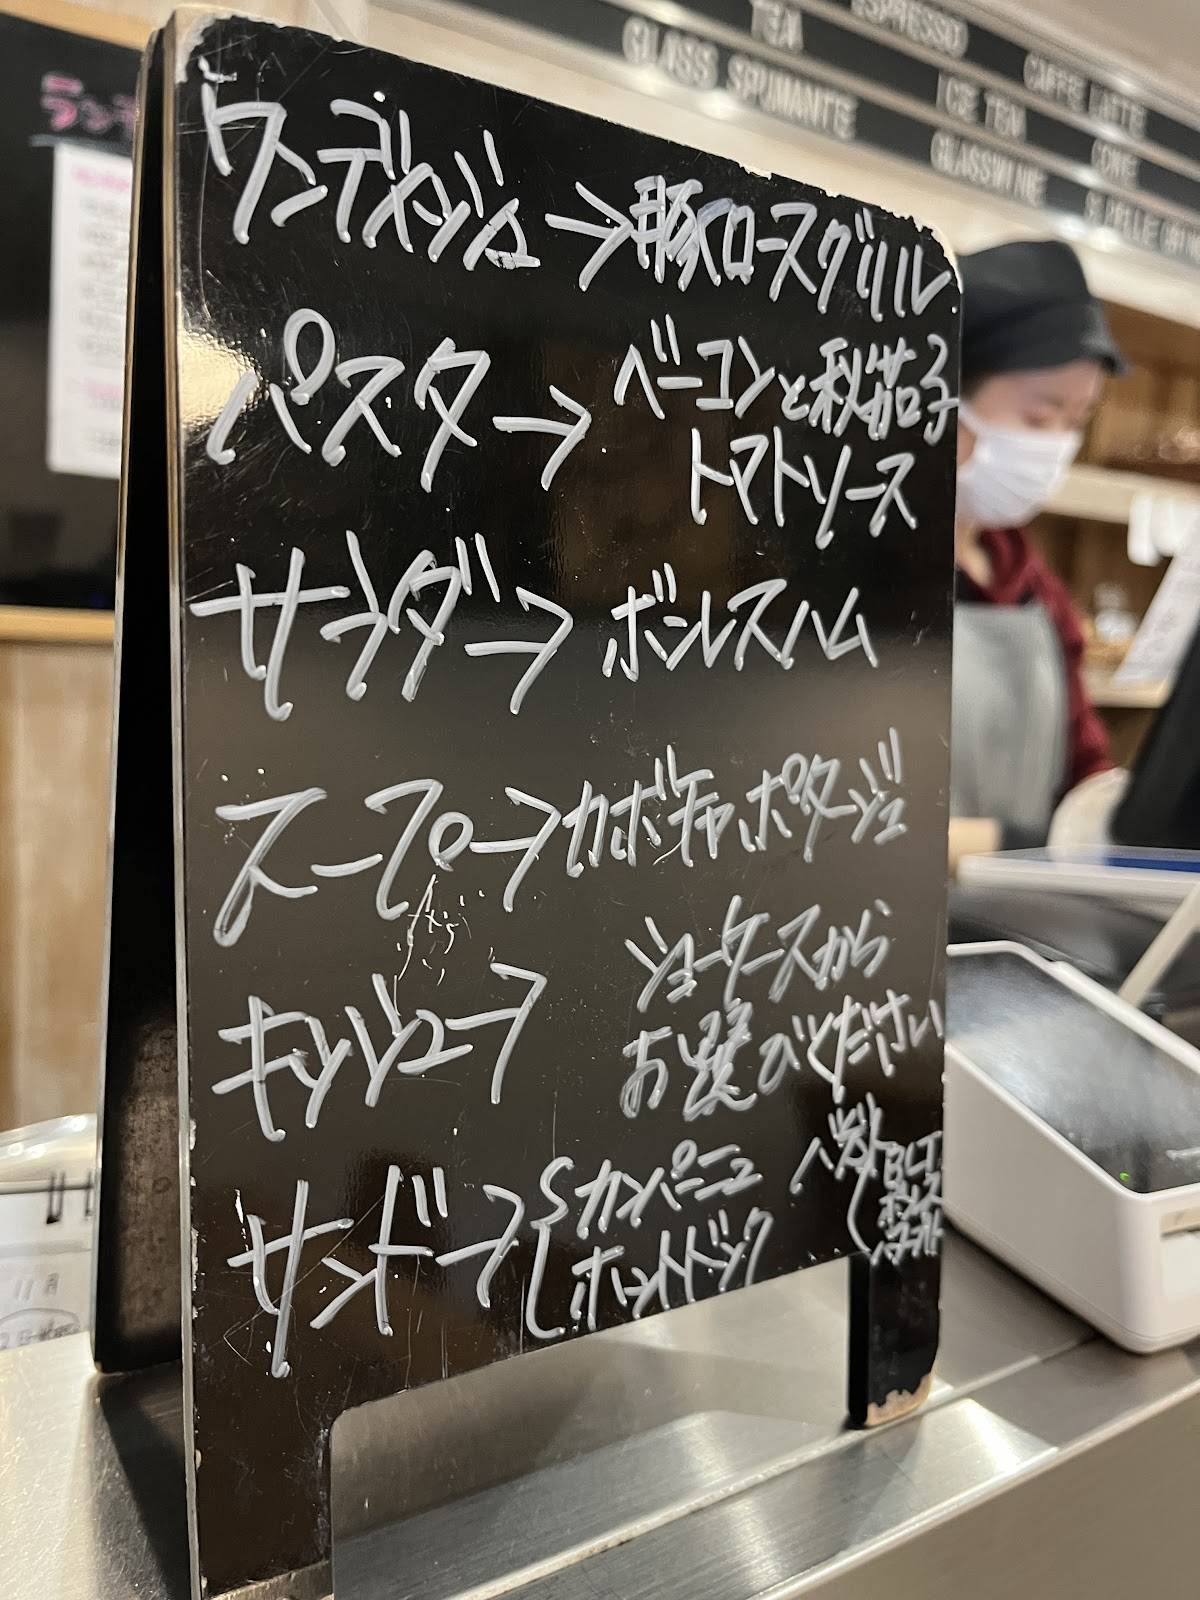 TEA
ESPRESSO
CAFFE LATTE
GLASS SPUMANTE
ICE TEA
GLASSWINE
ワンデメージュ→豚ロースグリル
パスタ→ベーコンと秋茄子
トマトソース
サラダ→ボンレスハム
スープ→カボチャポタージュ
キッシュ→ショーケースから
お選びください
サンド→カンパーニュ
ホットドック
BLT
11月